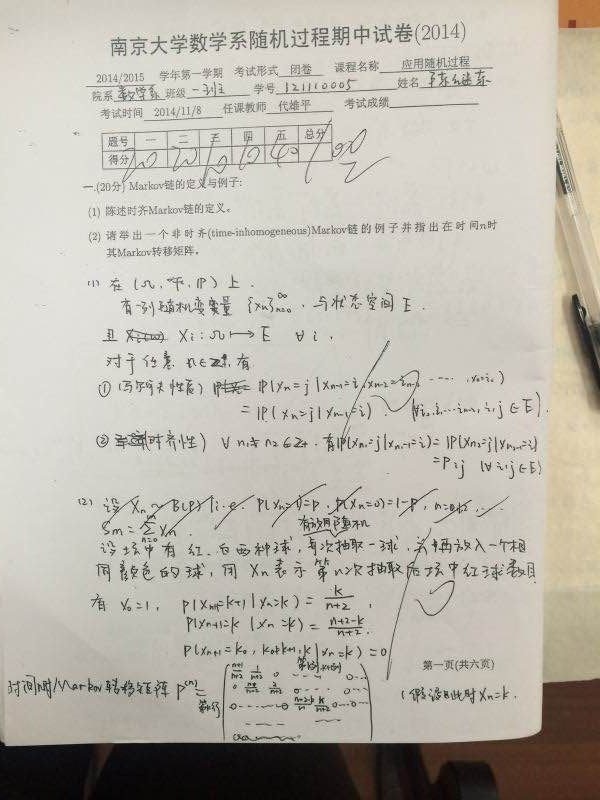 南京大学数学系随机过程期中试卷(2014)
2014/2015 学年第一学期 考试形式 闭卷 课程名称 应用随机过程
院系 数学系 班级 一班 学号 121110005 姓名
考试时间 2014/11/8 任课教师 代雄平 考试成绩
题号 一 二 三 四 五 总分
得分 20 20 10 10 40 100
一.(20分) Markov链的定义与例子:
(1) 陈述时齐Markov链的定义。
(2) 请举出一个非时齐(time-inhomogeneous)Markov链的例子并指出在时间n时
其Markov转移矩阵。
(1) 在 (Ω, F, P) 上.
有一列随机变量 {Xn}∞n=0, 与状态空间 E.
且 Xi: Ω → E ∀ i,
对于任意 n∈Z+, 有
① (马尔可夫性质) P(Xn=j|Xn-1=i, Xn-2=in-2, ······, X0=i0)
= P(Xn=j|Xn-1=i). (∀i0, i1, ... in-2, i, j ∈ E).
② (时齐性) ∀ n1≠n2∈Z+. 有P(Xn1=j|Xn1-1=i) = P(Xn2=j|Xn2-1=i)
= Pij (∀i,j∈E)
(2) 设 Xn ~ B(P) i.e. P(Xn=1)=p, P(Xn=0)=1-p, n=0,1,2,...
Sm = Σ Xn.
有放回随机
设坛中有红、白两种球, 每次抽取一球, 并再放入一个相
同颜色的球, 用 Xn 表示第n次抽取后坛中红球数目
有 X0=1, P(Xn+1=k+1|Xn=k) = k/(n+2),
P(Xn+1=k|Xn=k) = (n+2-k)/(n+2).
P(Xn+1=k0, k0≠k+1,k|Xn=k) = 0
第一页(共六页)
时间n时Markov转移矩阵 P(n) =
(假设此时Xn=k.